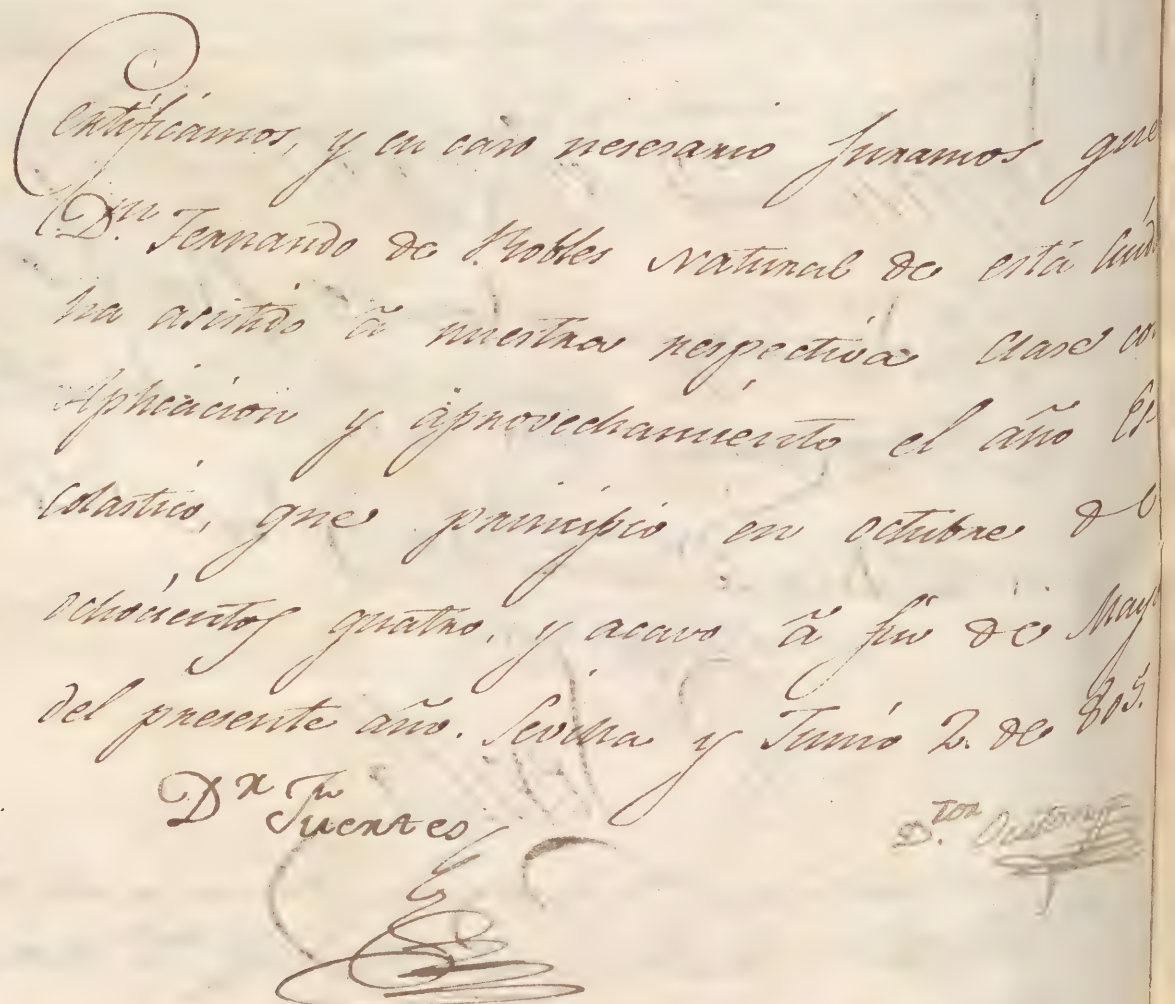 Certificamos, y en caso nesesario Juramos que
Dn. Fernando de Robles Natural de está Ciud
ha asistido ã nuestra respectiva Clase co
Aplicacion y ãprovechamiento el año Es
colastico, que principio en octubre d
ochocientos quatro, y acavo ã fin de Mayo
del presente año. Sevilla y Junio 2. de 805.
Dr
Fuentes
D.tor